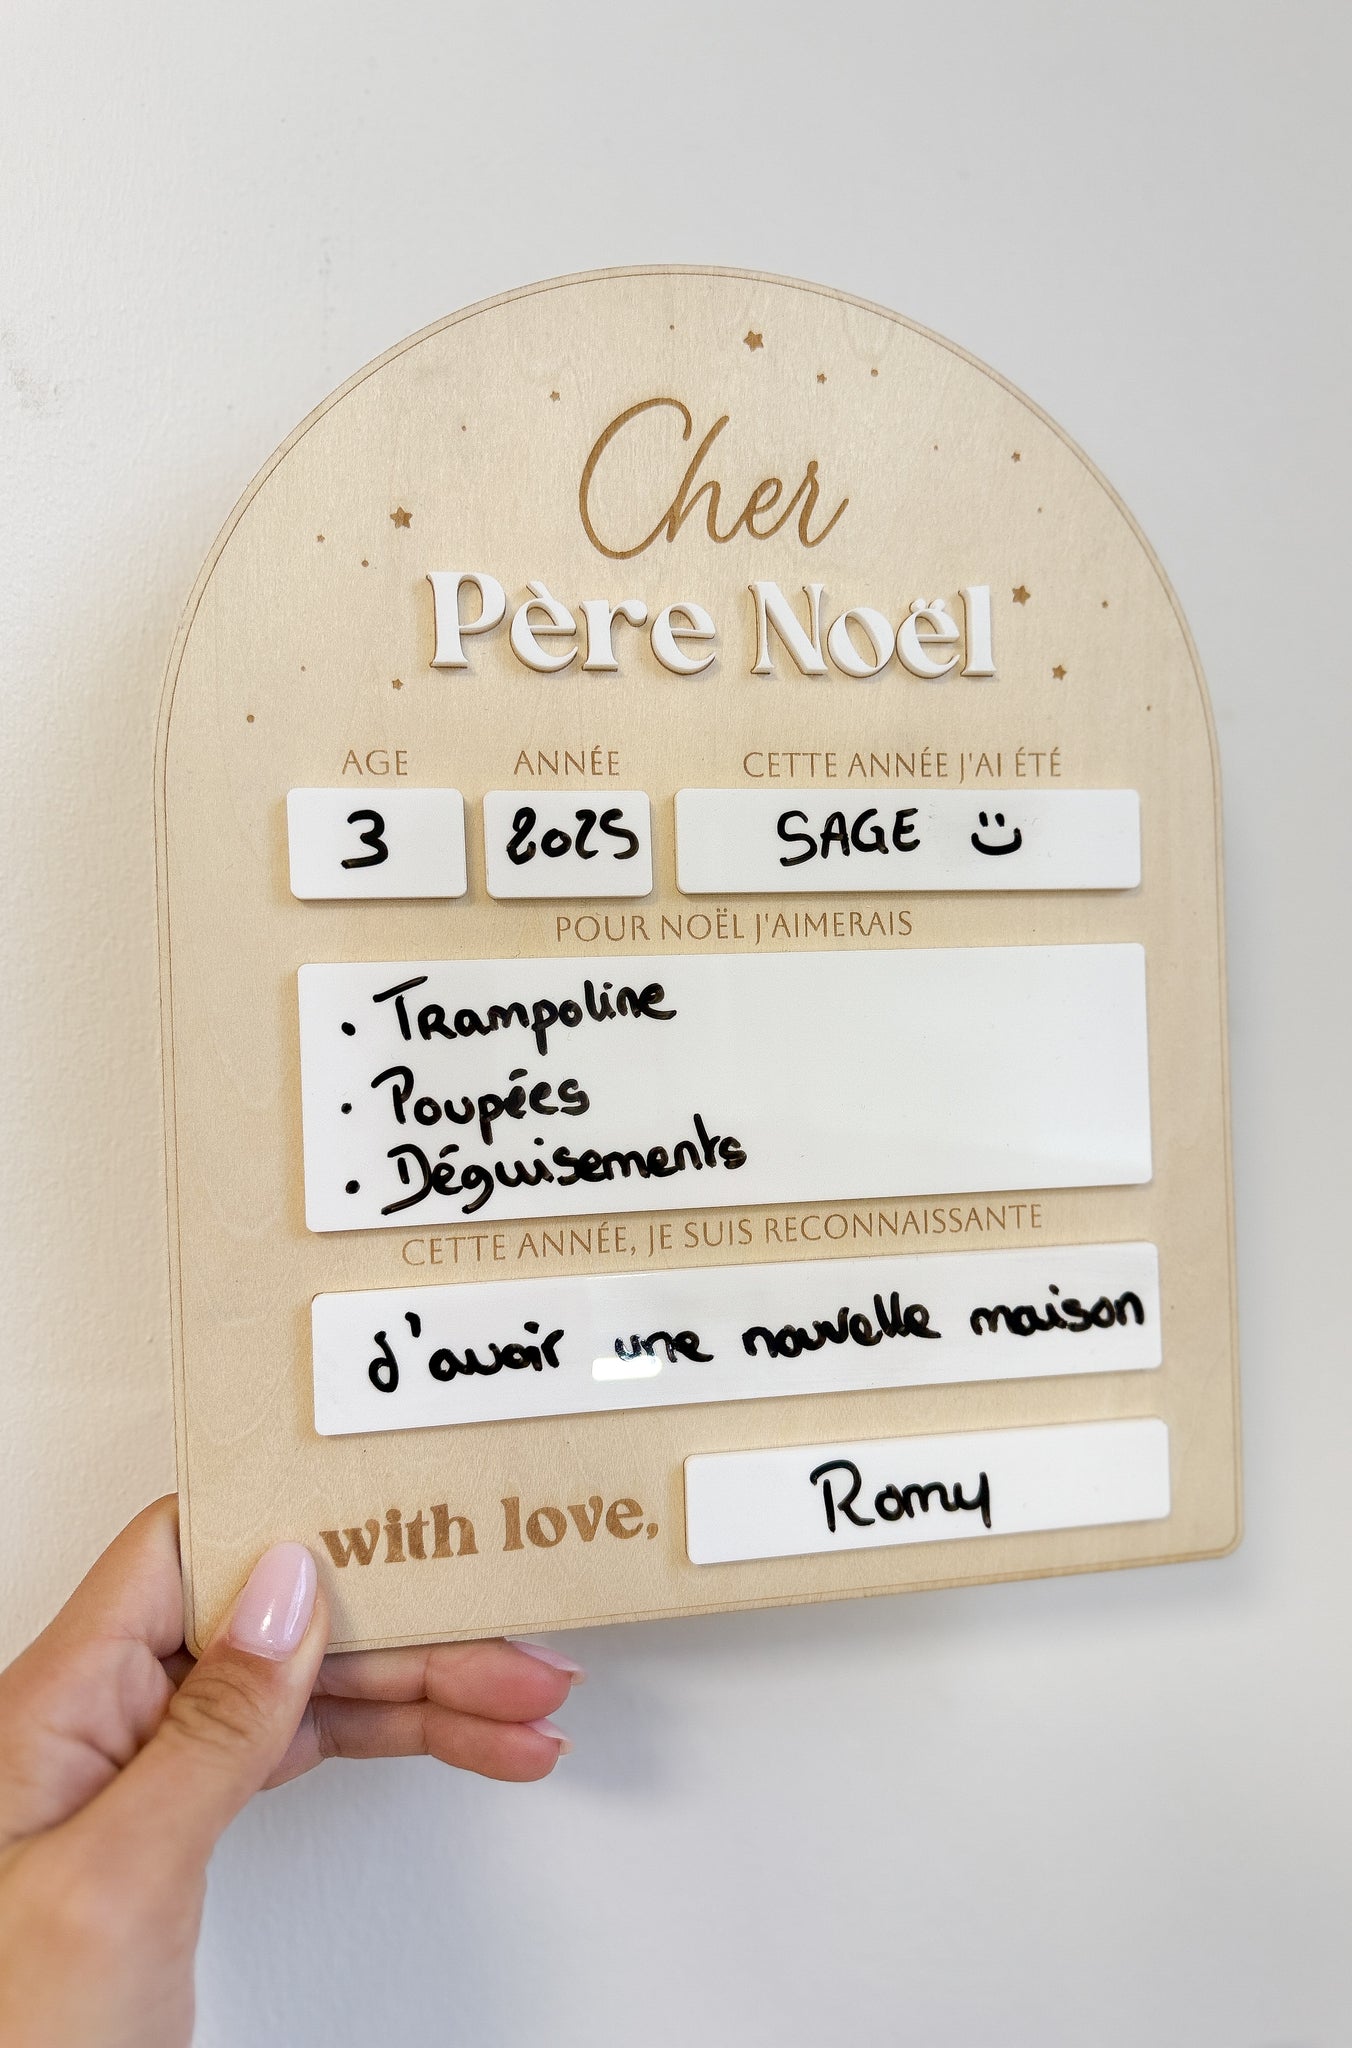 Cher
Père Noël
AGE ANNÉE CETTE ANNÉE J'AI ÉTÉ
3 2025 SAGE
POUR NOËL J'AIMERAIS
• Trampoline
• Poupées
• Déguisements
CETTE ANNÉE, JE SUIS RECONNAISSANTE
d'avoir une nouvelle maison
with love, Romy